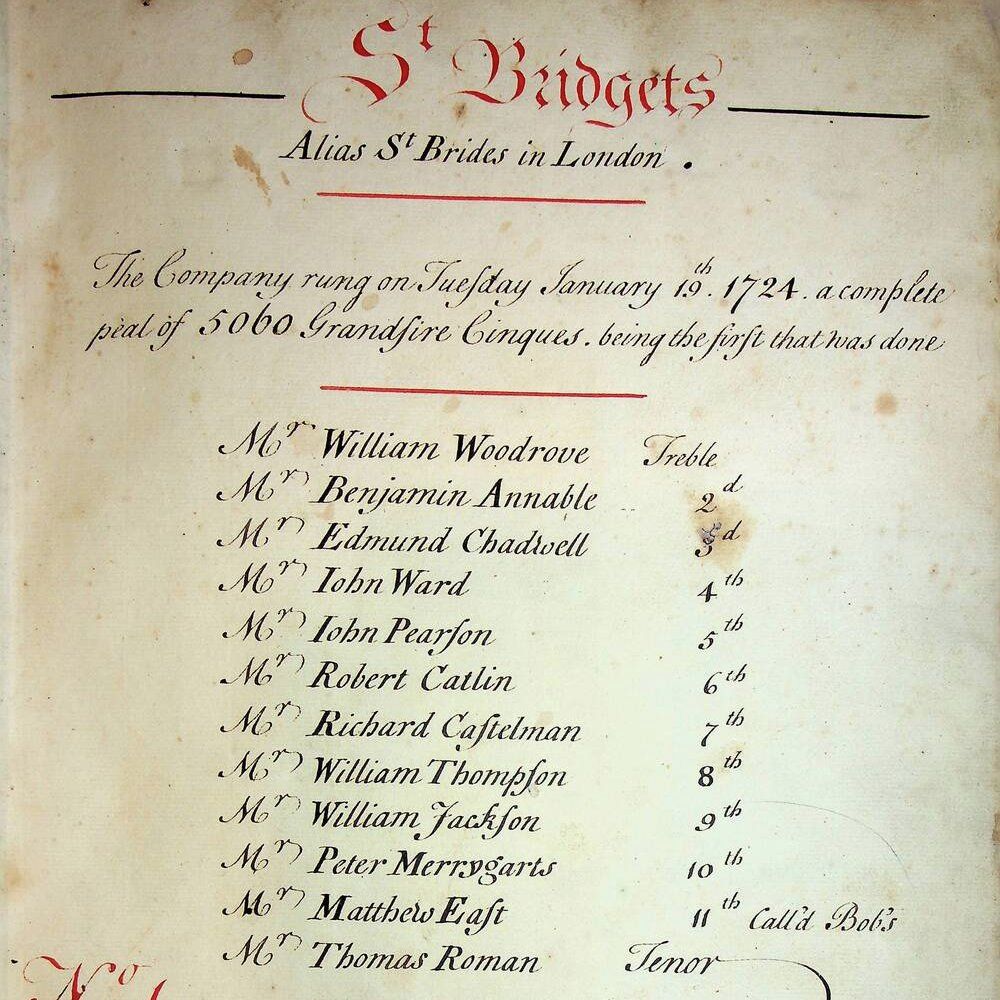 St Bridgets
Alias St Brides in London .
The Company rung on Tueſday January 19th. 1724. a complete
peal of 5060 Grandſire Cinques. being the firſt that was done
Mr William Woodrove Treble
Mr Benjamin Annable 2d
Mr Edmund Chadwell 3d
Mr Iohn Ward 4th
Mr Iohn Pearſon 5th
Mr Robert Catlin 6th
Mr Richard Caſtelman 7th
Mr William Thompſon 8th
Mr William Jackſon 9th
Mr Peter Merrygarts 10th
Mr Matthew Eaſt 11th Call'd Bob's
Mr Thomas Roman Tenor
No